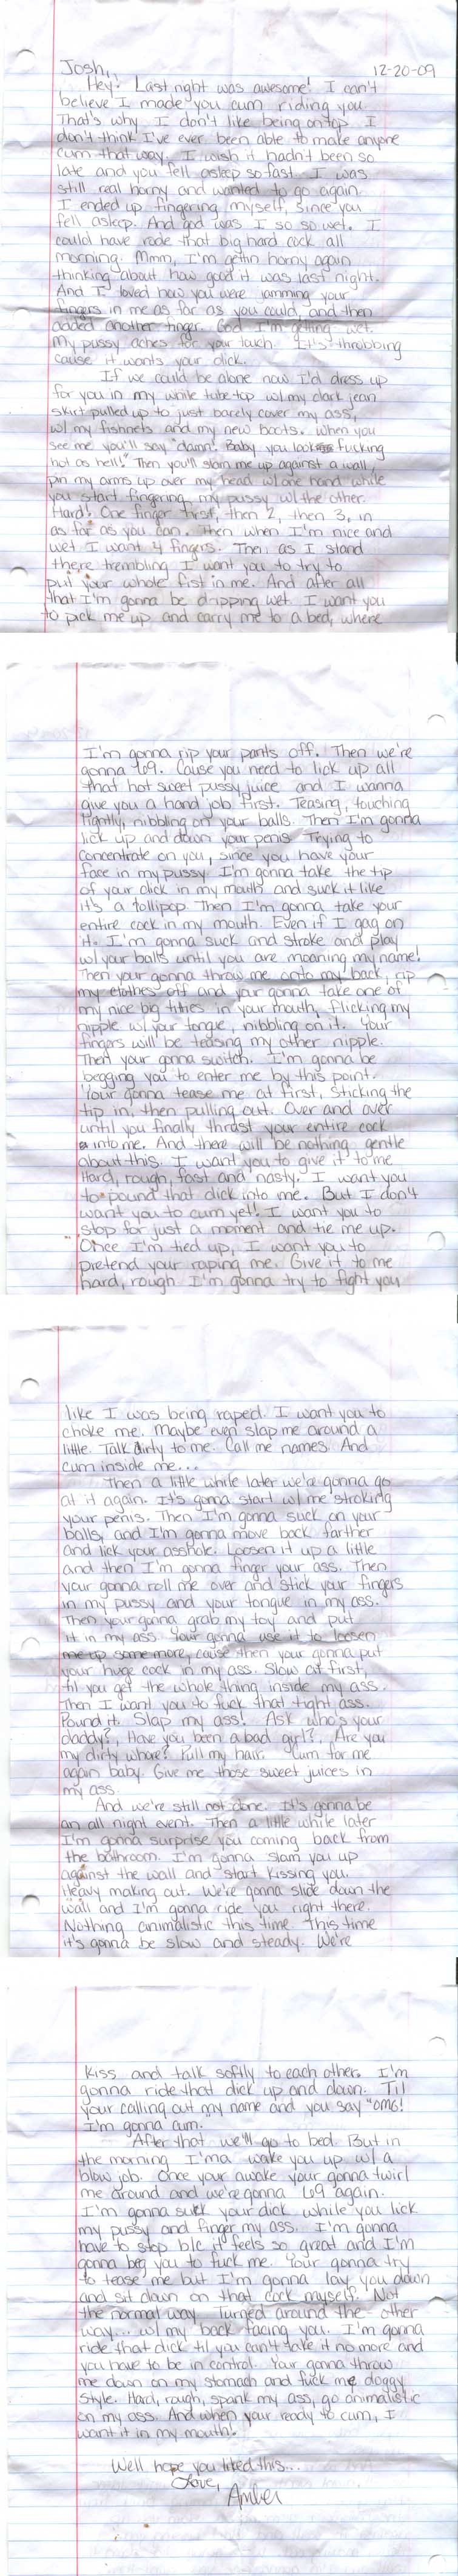 Josh, 12-20-09
Hey! Last night was awesome! I can't
believe I made you cum riding you.
That's why I don't like being on top. I
don't think I've ever been able to make anyone
cum that way. I wish it hadn't been so
late and you fell asleep so fast. I was
still real horny and wanted to go again.
I ended up fingering myself, since you
fell asleep. And god was I so so wet. I
could have rode that big hard cock all
morning. Mmm, I'm gettin horny again
thinking about how good it was last night.
And I loved how you were jamming your
fingers in me as far as you could, and then
added another finger. God I'm getting wet.
My pussy aches for your touch. It's throbbing
cause it wants your dick.
If we could be alone now I'd dress up
for you in my white tube top w/ my dark jean
skirt pulled up to just barely cover my ass,
w/ my fishnets and my new boots. When you
see me you'll say "damn! Baby you look fucking
hot as hell!" Then you'll slam me up against a wall,
pin my arms up over my head w/ one hand while
you start fingering my pussy w/ the other.
Hard! One finger first, then 2, then 3, in
as far as you can. Then when I'm nice and
wet I want 4 fingers. Then as I stand
there trembling I want you to try to
put your whole fist in me. And after all
that I'm gonna be dripping wet. I want you
to pick me up and carry me to a bed, where
I'm gonna rip your pants off. Then we're
gonna 69. Cause you need to lick up all
that hot sweet pussy juice and I wanna
give you a hand job first. Teasing, touching
lightly, nibbling on your balls. Then I'm gonna
lick up and down your penis. Trying to
concentrate on you, since you have your
face in my pussy. I'm gonna take the tip
of your dick in my mouth and suck it like
it's a lollipop. Then I'm gonna take your
entire cock in my mouth. Even if I gag on
it. I'm gonna suck and stroke and play
w/ your balls until you are moaning my name!
Then your gonna throw me onto my back, rip
my clothes off and your gonna take one of
my nice big titties in your mouth, flicking my
nipple w/ your tongue, nibbling on it. Your
fingers will be teasing my other nipple.
Then your gonna switch. I'm gonna be
begging you to enter me by this point.
Your gonna tease me at first, sticking the
tip in, then pulling out. Over and over
until you finally thrust your entire cock
into me. And there will be nothing gentle
about this. I want you to give it to me
hard, rough, fast and nasty. I want you
to pound that dick into me. But I don't
want you to cum yet. I want you to
stop for just a moment and tie me up.
Once I'm tied up, I want you to
pretend your raping me. Give it to me
hard, rough. I'm gonna try to fight you
like I was being raped. I want you to
choke me. Maybe even slap me around a
little. Talk dirty to me. Call me names. And
cum inside me...
Then a little while later we're gonna go
at it again. It's gonna start w/ me stroking
your penis. Then I'm gonna suck on your
balls, and I'm gonna move back farther
and lick your asshole. Loosen it up a little
and then I'm gonna finger your ass. Then
your gonna roll me over and stick your fingers
in my pussy and your tongue in my ass.
Then your gonna grab my toy and put
it in my ass. Your gonna use it to loosen
me up some more, cause then your gonna put
your huge cock in my ass. Slow at first,
til you get the whole thing inside my ass.
Then I want you to fuck that tight ass.
Pound it. Slap my ass! Ask who's your
daddy?, Have you been a bad girl?, Are you
my dirty whore? Pull my hair. Cum for me
again baby. Give me those sweet juices in
my ass.
And we're still not done. It's gonna be
an all night event. Then a little while later
I'm gonna surprise you coming back from
the bathroom. I'm gonna slam you up
against the wall and start kissing you.
Heavy making out. We're gonna slide down the
wall and I'm gonna ride you right there.
Nothing animalistic this time. This time
it's gonna be slow and steady. We're
kiss and talk softly to each other. I'm
gonna ride that dick up and down. Til
your calling out my name and you say "OMG!
I'm gonna cum."
After that we'll go to bed. But in
the morning I'ma wake you up w/ a
blow job. Once your awake your gonna twirl
me around and we're gonna 69 again.
I'm gonna suck your dick while you lick
my pussy and finger my ass. I'm gonna
have to stop b/c it feels so great and I'm
gonna beg you to fuck me. Your gonna try
to tease me but I'm gonna lay you down
and sit down on that cock myself. Not
the normal way. Turned around the other
way... w/ my back facing you. I'm gonna
ride that dick til you can't take it no more and
you have to be in control. Your gonna throw
me down on my stomach and fuck me doggy
style. Hard, rough, spank my ass, go animalistic
on my ass. And when your ready to cum, I
want it in my mouth!
Well hope you liked this...
Love,
Amber